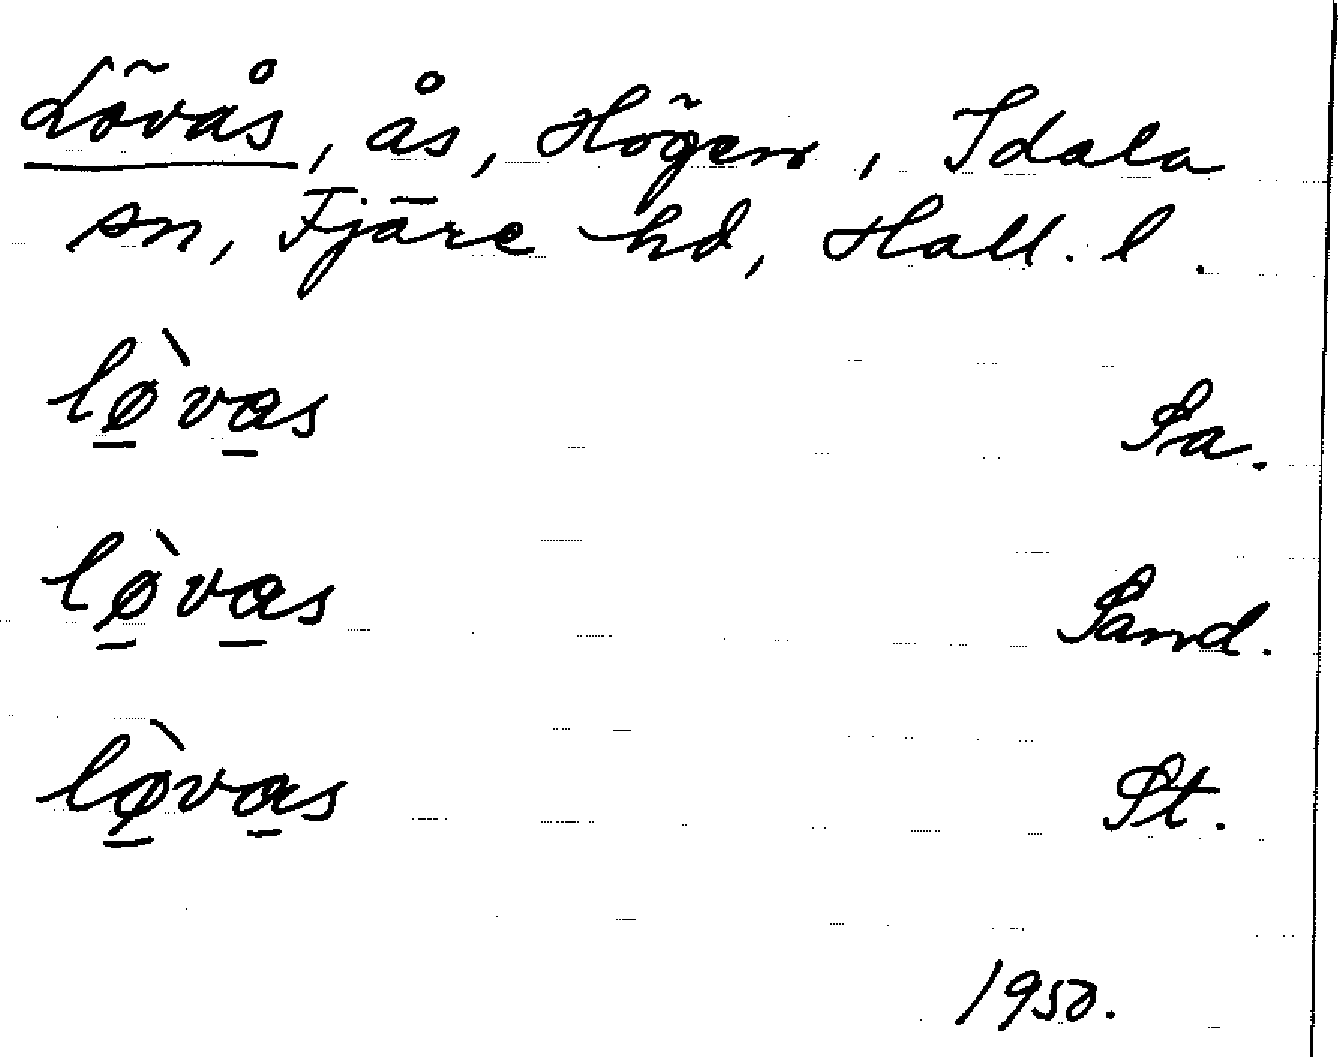 Lövås, ås, Högen, Idala
sn, Fjäre hd, Hall. l.
lø̠̀va̠s Sa.
lø̠̀va̠s Sand.
lø̠̀va̠s St.
1950.